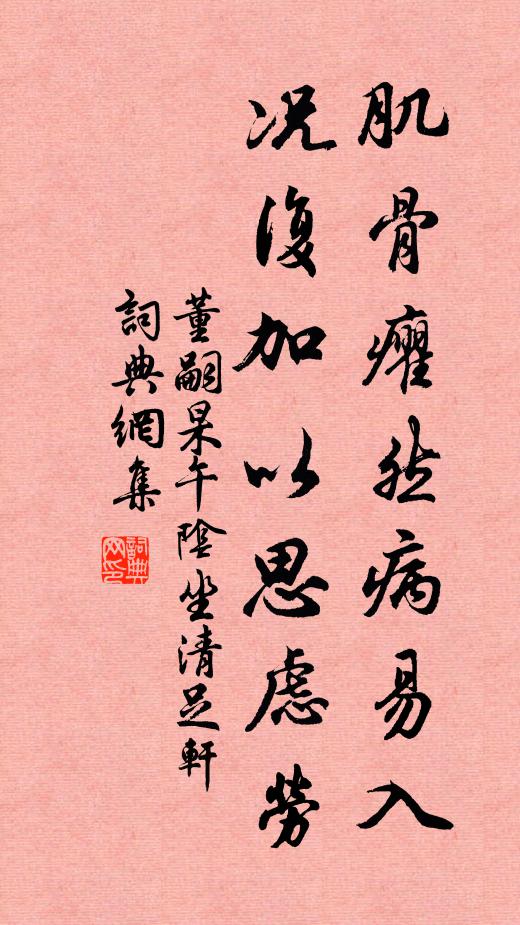 肌骨癯然病易入
况復加以思慮勞
董嗣杲午陰坐清足軒
詞典網集
詞典網印